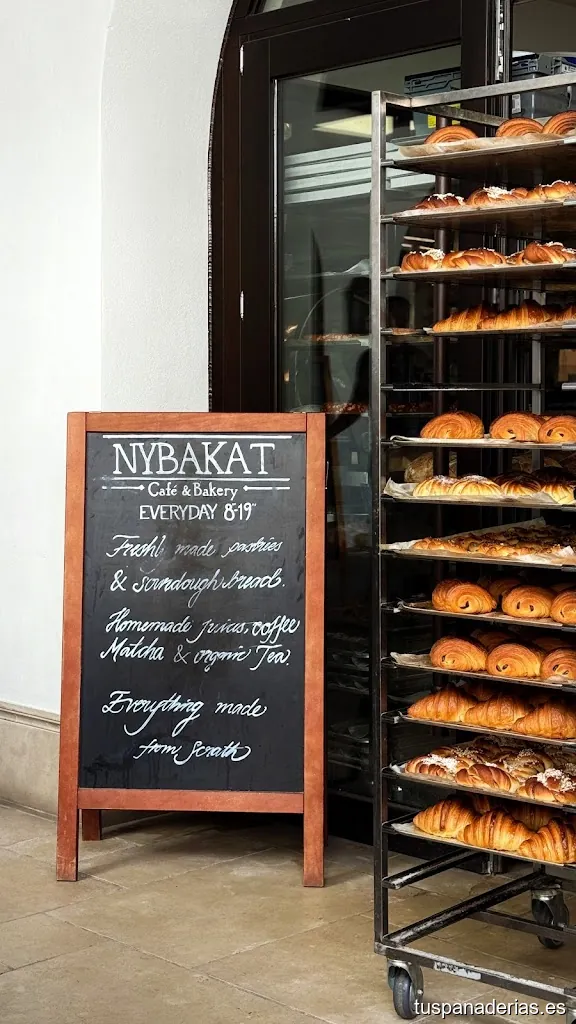 NYBAKAT
Café & Bakery
EVERYDAY 8-19
Freshly made pastries
& sourdough bread.
Homemade juices, coffee
Matcha & organic Tea.
Everything made
from Scrath
tuspanaderias.es